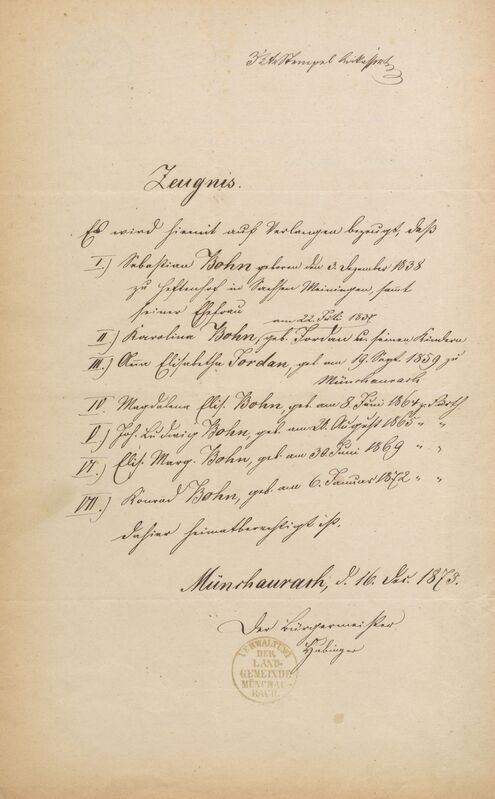 Stempel
Zeugnis.
Es wird hiemit auf Verlangen bezeugt, daß
I.) Sebastian Bohn geboren den 3. Dezember 1838
zu Heftenhof in Sachsen Meiningen, sammt
seiner Ehefrau
am 22. Juli 1837
II.) Karolina Bohn, geb. Jordan u. seinen Kindern
III.) Anna Elisabetha Jordan, geb. am 19. Sept. 1859 zu
Münchaurach
IV. Magdalena Elis. Bohn, geb. am 8. Juni 1864 z. Fürth
V.) Joh. Ludwig Bohn, geb. am 21. August 1865 " "
VI.) Elis. Marg. Bohn, geb. am 30. Juni 1869 " "
VII.) Konrad Bohn, geb. am 6. Januar 1872 " "
dahier heimatberechtigt ist.
Münchaurach, d. 16. Dez. 1873.
Der Bürgermeister
Hubinger
VERWALTUNG
DER
LAND-
GEMEINDE
MÜNCHAU-
RACH.